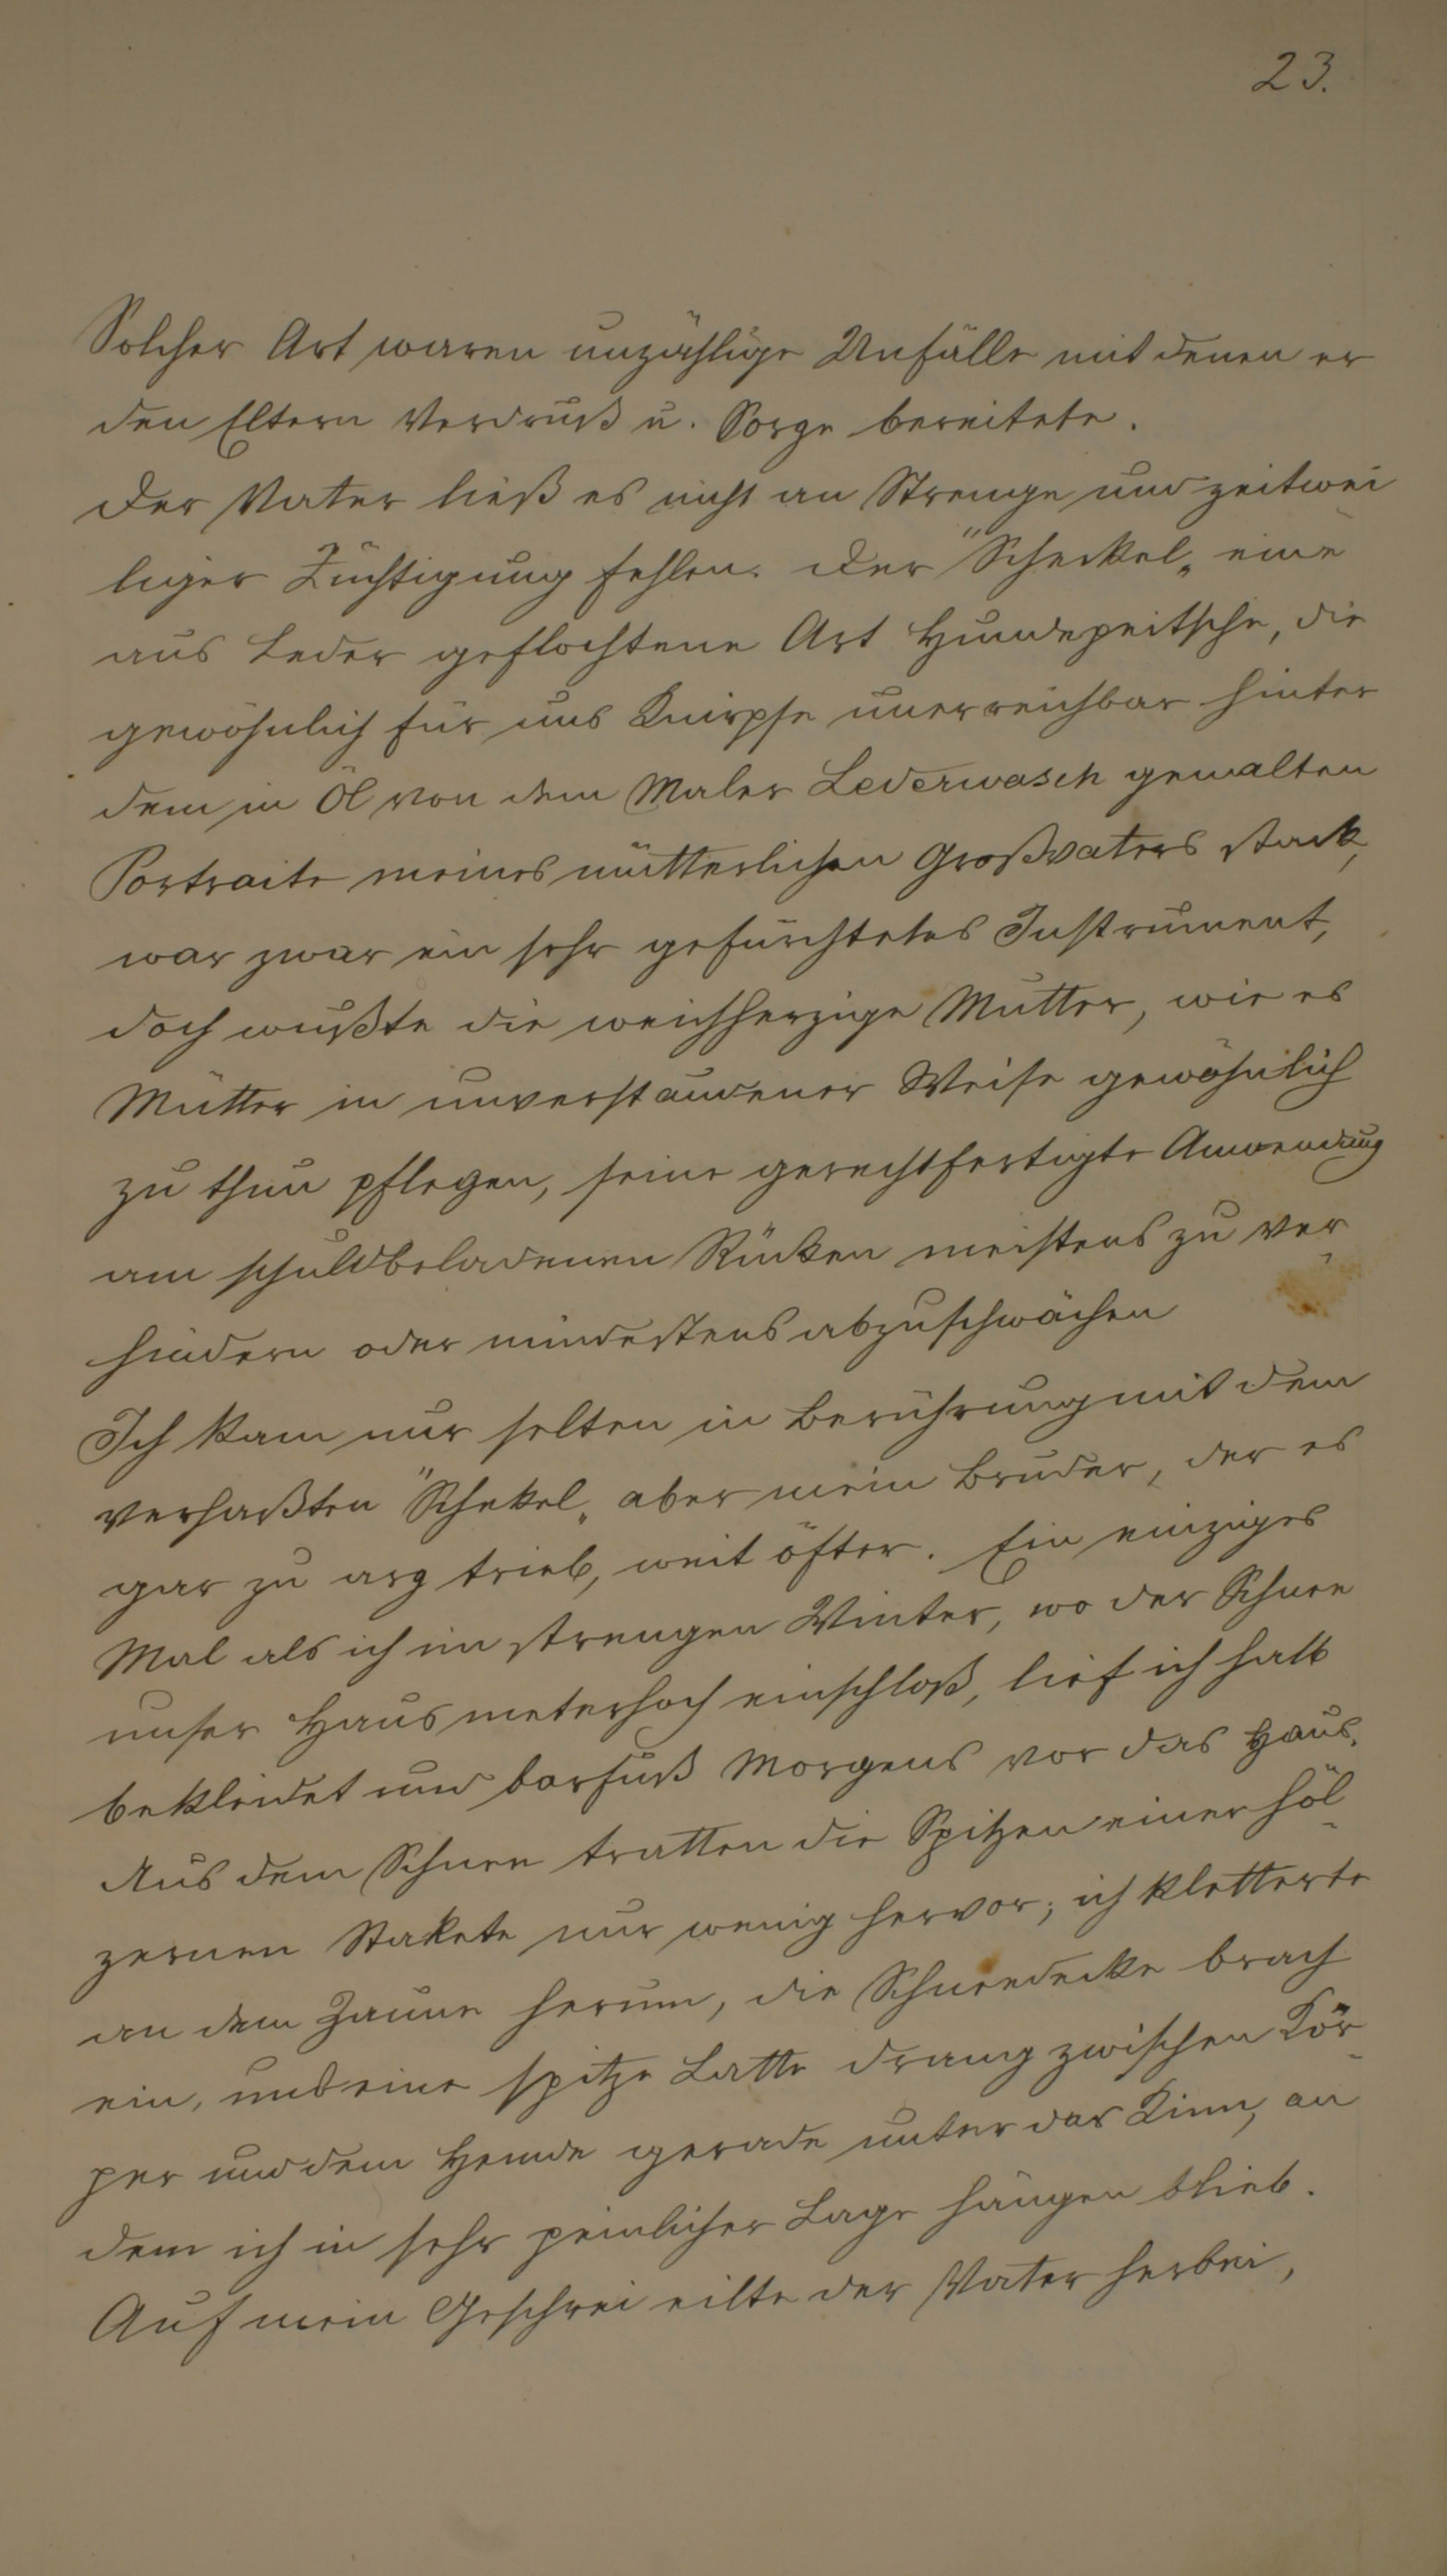 23.
Solcher Art waren unzählige Unfälle mit denen er
den Eltern Verdruß u. Sorge bereitete.
Der Vater ließ es nicht an Strenge und zeitwei
liger Züchtigung fehlen. Der "Scheckel„ eine
aus Leder geflochtene Art Hundepeitsche, die
gewöhnlich für uns Knirpse unerreichbar hinter
dem in Öl von dem Maler Lederwasch gemalten
Portraite meines mütterlichen Großvaters stack,
war zwar ein sehr gefürchtetes Instrument,
doch wußte die weichherzige Mutter, wie es
Mütter in unverstandener Weise gewöhnlich
zu thun pflegen, seine gerechtfertigte Anwendung
am schuldbeladenen Rücken meistens zu ver-
hindern oder mindestens abzuschwächen
Ich kam nur selten in Berührung mit dem
verhaßten "Schekel„ aber mein Bruder, der es
gar zu arg trieb, weit öfter. Ein einziges
Mal als ich im strengen Winter, wo der Schnee
unser Haus meterhoch einschloß, lief ich halb
bekleidet und barfuß Morgens vor das Haus.
Aus dem Schnee tratten die Spitzen einer höl-
zernen Stakete nur wenig hervor; ich kletterte
an dem Zaune herum, die Schneedecke brach
ein, und eine spitze Latte drang zwischen Kör-
per und dem Hemde gerade unter das Kinn, an
dem ich in sehr peinlicher Lage hängen blieb.
Auf mein Geschrei eilte der Vater herbei,